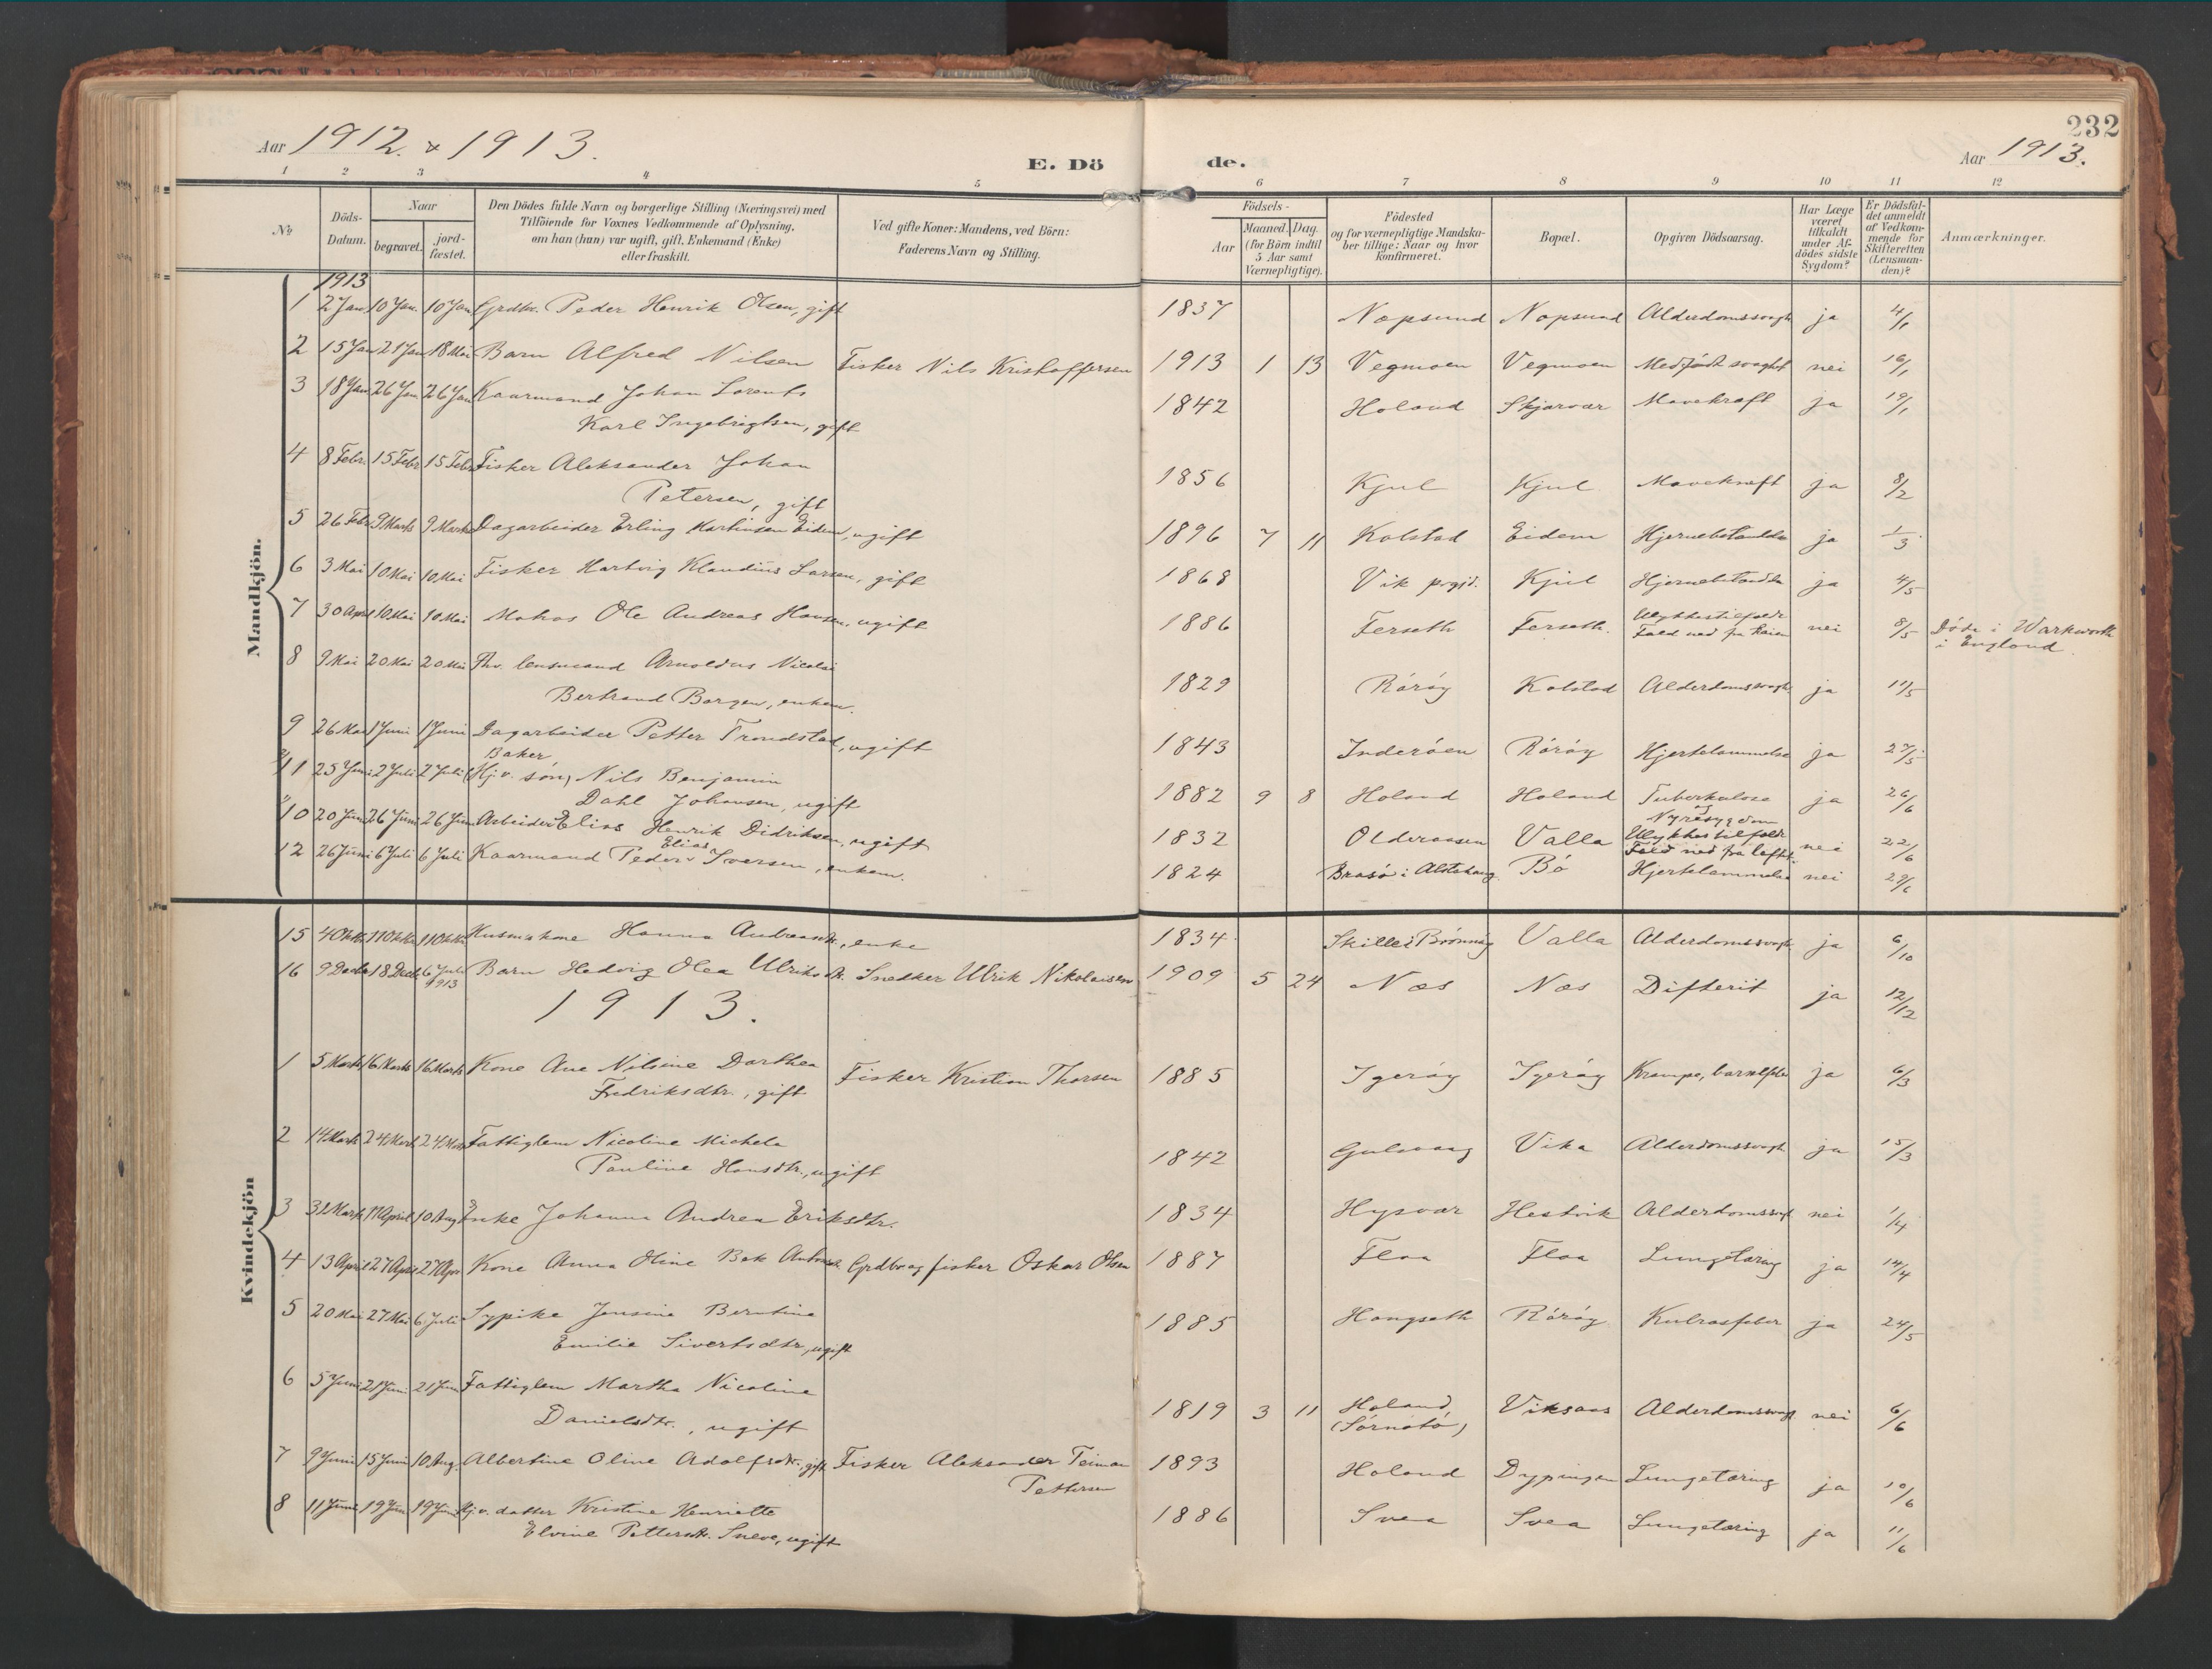 232
Aar 1912. & 1913.
E. Döde.
Aar 1913.
1 2 3 4 5 6 7 8 9 10 11 12
No
Döds-Datum.
Naar
begravet.
jord-fæstet.
Den Dödes fulde Navn og borgerlige Stilling (Næringsvei) med
Tilföiende for Voxnes Vedkommende af Oplysning,
om han (hun) var ugift, gift, Enkemand (Enke)
eller fraskilt.
Ved gifte Koner: Mandens, ved Börn:
Faderens Navn og Stilling.
Födsels-
Aar
Maaned. Dag.
(for Börn indtil
5 Aar samt
Værnepligtige).
Födested
og for værnepligtige Mandska-
ber tillige: Naar og hvor
konfirmeret.
Bopæl.
Opgiven Dödsaarsag.
Har Læge
været
tilkaldt
under Af-
dödes sidste
Sygdom?
Er Dödsfal-
det anmeldt
af Vedkom-
mende for
Skifteretten
(Lensman-
den)?
Anmærkninger.
Mandkjön.
1913
1 2 Jan 10 Jan. 10 Jan Grdbr. Peder Henrik Olsen, gift 1837 Næpsund Næpsund Alderdomssvagh ja 4/1
2 15 Jan 21 Jan 18 Mai Barn Alfred Nilsen Fisker Nils Kristoffersen 1913 1 13 Vegmoen Vegmoen Medfödt svaghet nei 16/1
3 18 Jan 26 Jan 26 Jan Kaarmand Johan Lorents
Karl Ingebrigtsen, gift 1842 Holand Skjærvær Mavekræft ja 19/1
4 8 Febr. 15 Febr 15 Febr Fisker Aleksander Johan
Petersen, gift 1856 Kjul Kjul Mavekræft ja 8/2
5 26 Febr 9 Marts 9 Marts Dagarbeider Erling Martinsen Eidem, ugift 1896 7 11 Kolstad Eidem Hjernebetændelse ja 1/3
6 3 Mai 10 Mai 10 Mai Fisker Hartvig Klaudius Larsen, gift 1868 Vik prgjd. Kjul Hjernebetændelse ja 4/5
7 30 April 10 Mai 10 Mai Matros Ole Andreas Hansen, ugift 1886 Ferseth Ferseth. Ulykkestilfælde
Fald ned fra kaien nei 8/5 Döde i Warkworth
i England.
8 9 Mai 20 Mai 20 Mai Fhv. lensmand Arnoldus Nicolai
Bertrand Borgen, enkem. 1829 Röröy Kolstad Alderdomssvagh ja 11/5
9 26 Mai 1 Juni 1 Juni Dagarbeider Petter Trondstad, ugift 1843 Inderöen Röröy Hjertelammelse ja 27/5
11 25 Juni 2 Juli 2 Juli Baker (Hj.v. sön) Nils Benjamin
Dahl Johansen, ugift 1882 9 8 Holand Holand Tuberkulose
og Nyresygdom ja 26/6
10 20 Juni 26 Juni 26 Juni Arbeider Elias Henrik Didriksen, ugift 1832 Olderaasen Valla Ulykkestilfælde
Fald ned fra loftet. nei 22/6
12 26 Juni 6 Juli 6 Juli Kaarmand Peder Elias Iversen, enkem. 1824 Brasö i Alstahaug Bö Hjertelammelse nei 29/6
Kvindekjön
15 4 Oktbr 11 Oktbr 11 Oktbr Husmskone Hanna Andreasdtr., enke 1834 Skillei Brönnöy Valla Alderdomssvagh ja 6/10
16 9 Decbr 18 Decbr 6 Juli 1913 Barn Hedvig Olea Ulriksdtr. Snedker Ulrik Nikolaisen 1909 5 24 Næs Næs Difterit ja 12/12
1913.
1 5 Marts 16 Marts 16 Marts Kone Ane Nilsine Dorthea
Fredriksdtr., gift Fisker Kristian Thorsen 1885 Igeröy Igeröy Krampe, barnefeber ja 6/3
2 14 Marts 24 Marts 24 Marts Fattiglem Nicoline Michela
Pauline Hansdtr., ugift 1842 Gulsvaag Vika Alderdomssvagh ja 15/3
3 31 Marts 11 April 10 Aug Enke Johanna Andrea Eriksdtr. 1834 Hysvær Hestvik Alderdomssvagh nei 1/4
4 13 April 27 April 27 Apr Kone Anna Oline Bek Antonsdtr. Grdbr og fisker Oskar Olsen 1887 Floa Floa Lungetæring ja 14/4
5 20 Mai 27 Mai 6 Juli Sypike Jensine Berntine
Emilie Sivertsdtr., ugift 1885 Haugseth Röröy Kulrosfeber ja 24/5
6 5 Juni 21 Juni 21 Juni Fattiglem Martha Nicoline
Danielsdtr., ugift 1819 3 11 Holand
(Sörnötö) Viksaas Alderdomssvagh nei 6/6
7 9 Juni 15 Juni 10 Aug. Albertine Oline Adolfsdtr., gift Fisker Aleksander Teiman
Pettersen 1893 Holand Dypingen Lungetæring ja 10/6
8 11 Juni 19 Juni 19 Juni Hj.v. datter Kristine Henriette
Elvine Pettersdtr. Sneve, ugift 1886 Svea Svea Lungetæring ja 11/6